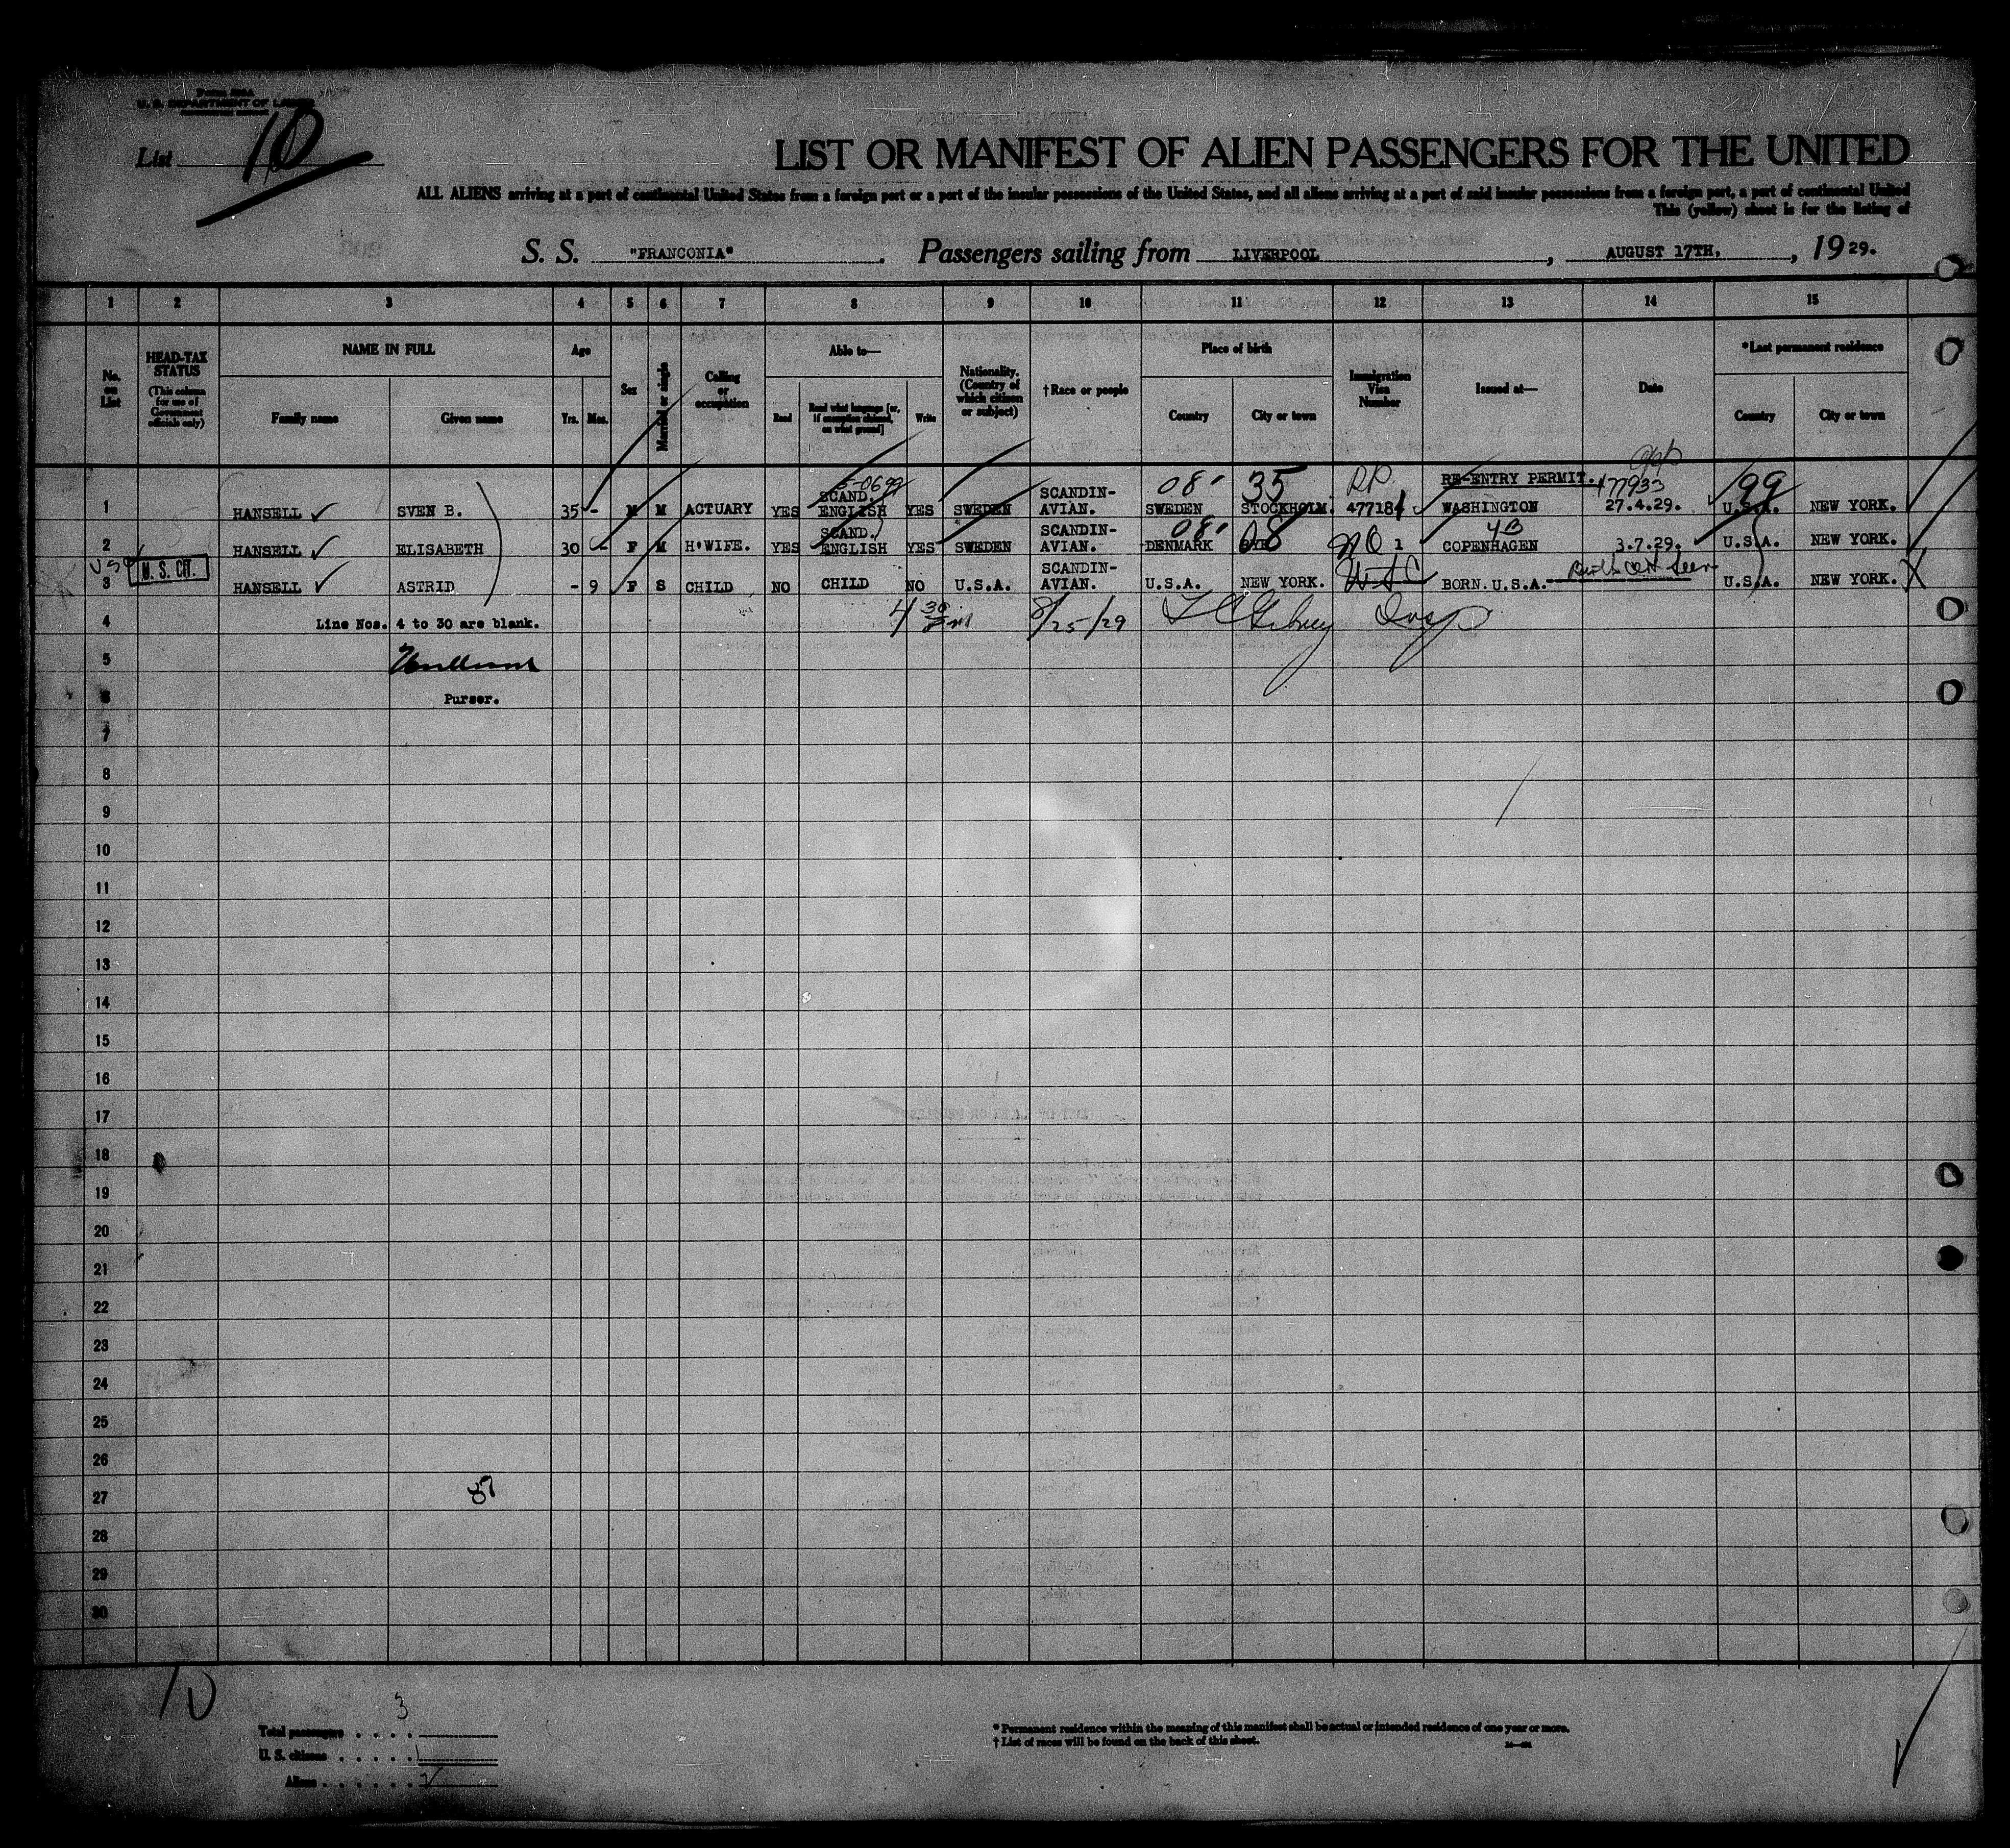 U. S. DEPARTMENT OF LABOR
List 10
LIST OR MANIFEST OF ALIEN PASSENGERS FOR THE UNITED
ALL ALIENS arriving at a port of continental United States from a foreign port or a port of the insular possessions of the United States, and all aliens arriving at a port of said insular possessions from a foreign port, a port of continental United
This (yellow) sheet is for the listing of
S. S. "FRANCONIA" . Passengers sailing from LIVERPOOL , AUGUST 17TH, , 19 29.
1 2 3 4 5 6 7 8 9 10 11 12 13 14 15
No. on List
HEAD-TAX STATUS (This column for use of Government officials only)
NAME IN FULL
Family name Given name
Age
Yrs. Mos.
Sex
Married or single
Calling or occupation
Able to—
Read Read what language [or, if exemption claimed, on what ground] Write
Nationality. (Country of which citizen or subject)
†Race or people
Place of birth
Country City or town
Immigration Visa Number
Issued at—
Date
*Last permanent residence
Country City or town
1 HANSELL SVEN B. 35 - M M ACTUARY YES SCAND. ENGLISH YES SWEDEN SCANDIN-AVIAN. 08 SWEDEN 35 STOCKHOLM. RP 477184 RE-ENTRY PERMIT. WASHINGTON 477933 27.4.29. 99 U.S.A. NEW YORK.
2 HANSELL ELISABETH 30 - F M H'WIFE. YES SCAND. ENGLISH YES SWEDEN SCANDIN-AVIAN. 08 DENMARK 08 NQ 1 4B COPENHAGEN 3.7.29. U.S.A. NEW YORK.
U. S. CIT.
3 HANSELL ASTRID - 9 F S CHILD NO CHILD NO U.S.A. SCANDIN-AVIAN. U.S.A. NEW YORK. BORN.U.S.A. Birth Cert Seen U.S.A. NEW YORK. X
4 Line Nos. 4 to 30 are blank. 4 30 pm 8/25/29 Insp
5
6 Purser.
7
8
9
10
11
12
13
14
15
16
17
18
19
20
21
22
23
24
25
26
27
28
29
30
10
Total passengers . . . . 3
U. S. citizens . . . . . 1
Aliens . . . . . . 2
* Permanent residence within the meaning of this manifest shall be actual or intended residence of one year or more.
† List of races will be found on the back of this sheet.